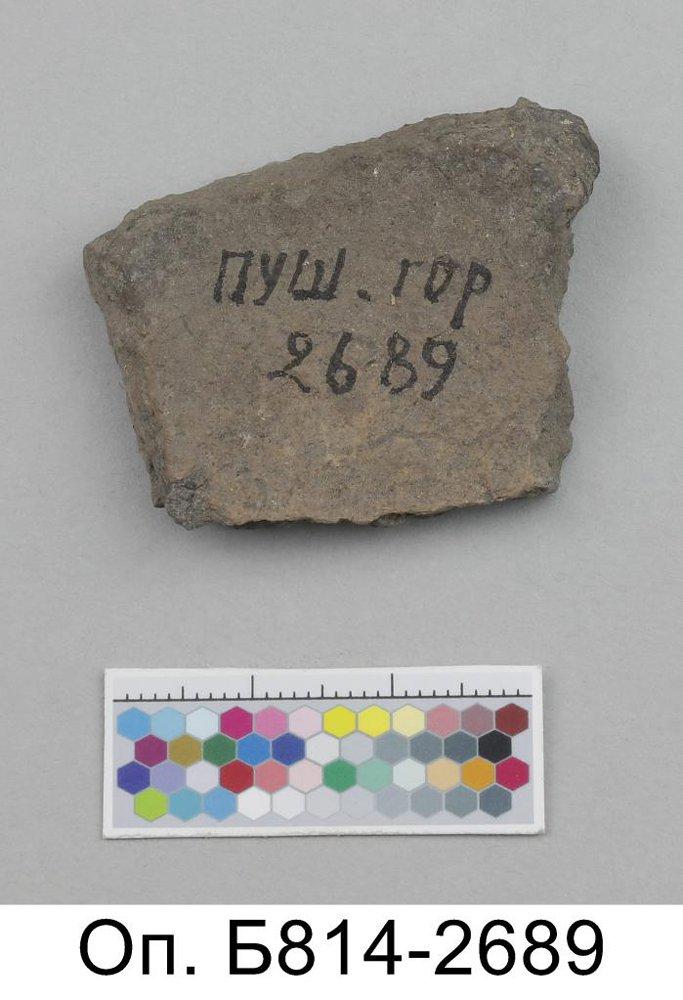 ПУШ. гор
2689
Оп. Б814-2689